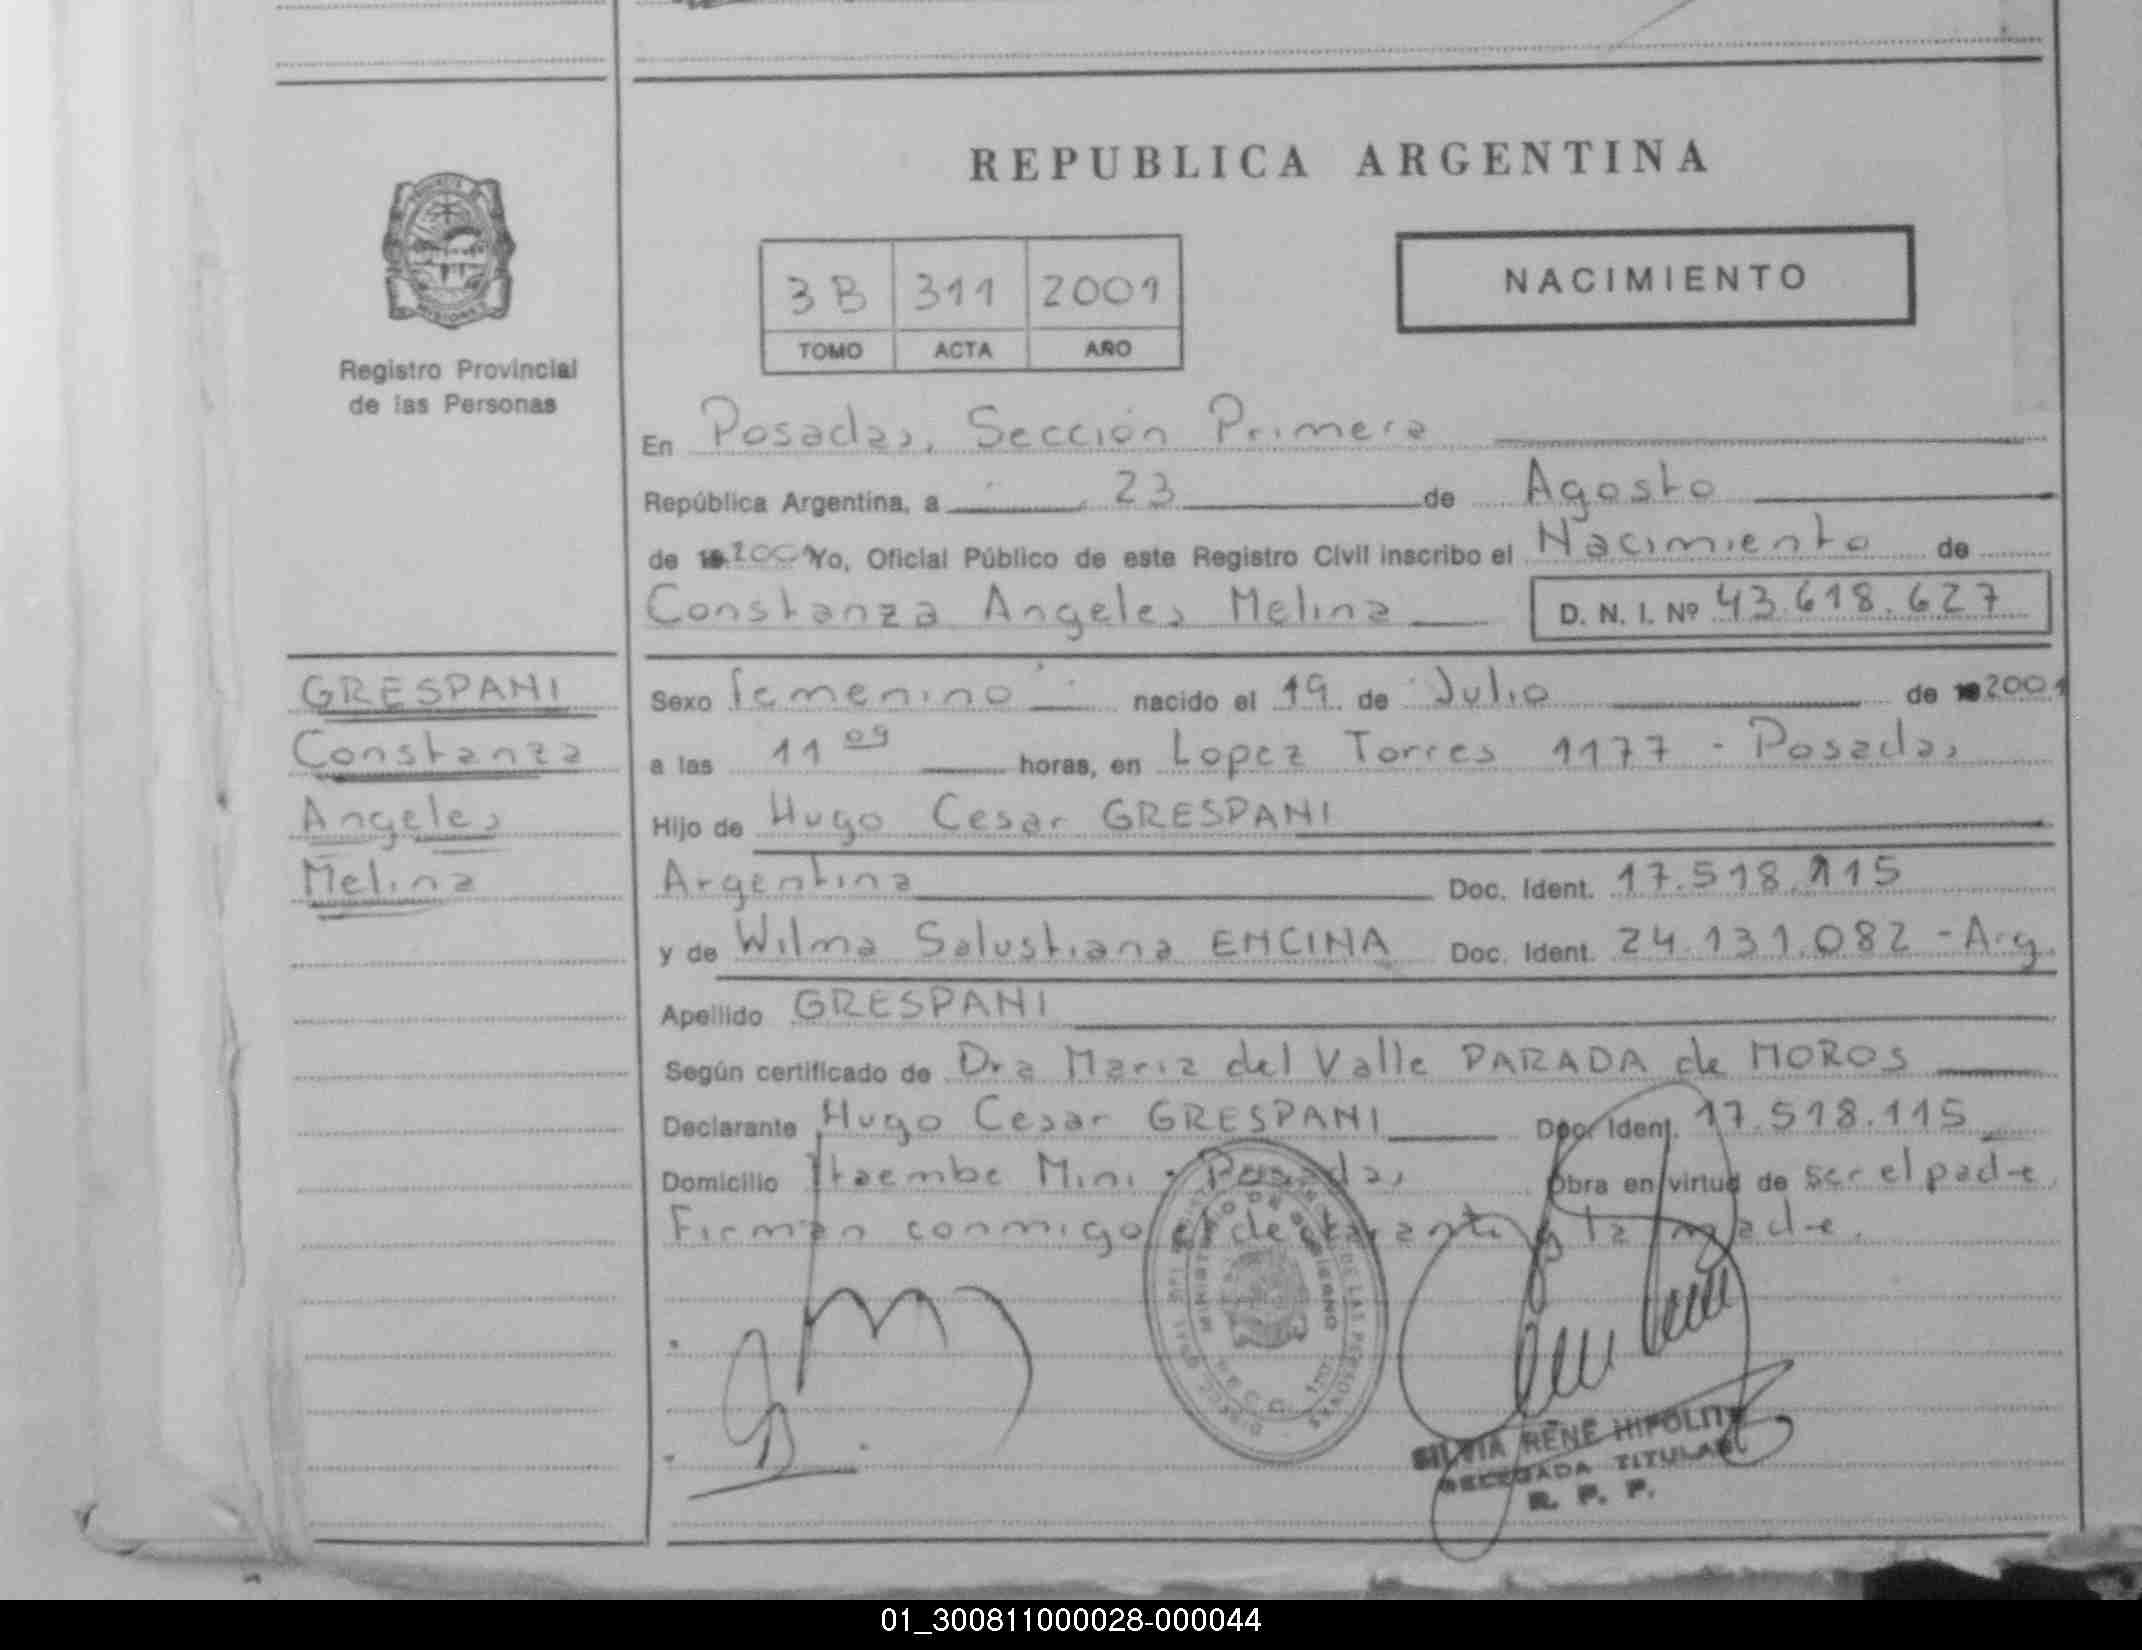 REPUBLICA ARGENTINA
NACIMIENTO
3B 311 2001
TOMO ACTA AÑO
Registro Provincial
de las Personas
En Posadas, Sección Primera
República Argentina, a 23 de Agosto
de 2001 Yo, Oficial Público de este Registro Civil inscribo el Nacimiento de
Constanza Angeles Melina D. N. I. Nº 43.618.627
GRESPANI
Constanza
Angeles
Melina
Sexo femenino nacido el 19 de Julio de 2001
a las 11 09 horas, en Lopez Torres 1177 - Posadas
Hijo de Hugo Cesar GRESPANI
Argentina Doc. Ident. 17.518.115
y de Wilma Salustiana ENCINA Doc. Ident. 24.131.082 - Arg.
Apellido GRESPANI
Según certificado de Dra Maria del Valle PARADA de MOROS
Declarante Hugo Cesar GRESPANI Doc. Ident. 17.518.115
Domicilio Itaembe Mini - Posadas Obra en virtud de ser el padre.
Firman conmigo el declarante y la madre.
SILVIA RENE HIPOLITO
DELEGADA TITULAR
R. P. P.
01_300811000028-000044